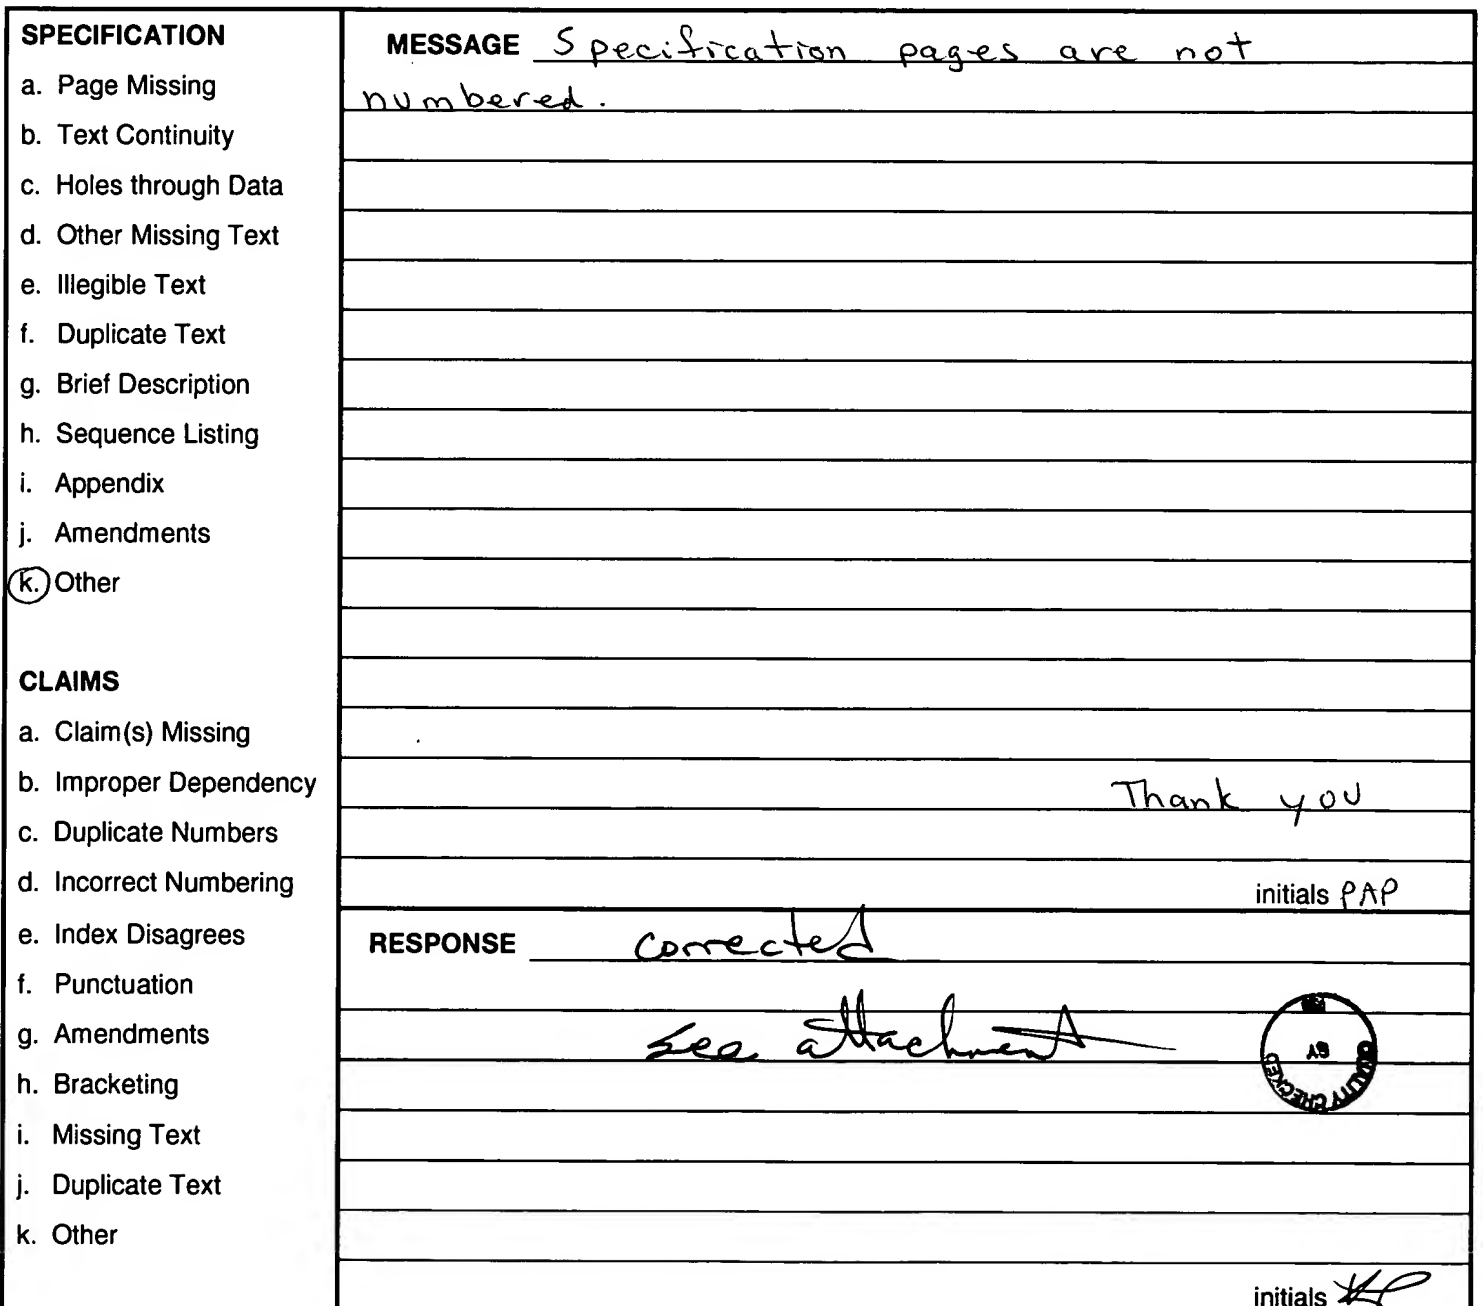 SPECIFICATION
a. Page Missing
b. Text Continuity
c. Holes through Data
d. Other Missing Text
e. Illegible Text
f. Duplicate Text
g. Brief Description
h. Sequence Listing
i. Appendix
j. Amendments
k. Other
CLAIMS
a. Claim(s) Missing
b. Improper Dependency
c. Duplicate Numbers
d. Incorrect Numbering
e. Index Disagrees
f. Punctuation
g. Amendments
h. Bracketing
i. Missing Text
j. Duplicate Text
k. Other
MESSAGE Specification pages are not
numbered.
Thank you
initials PAP
RESPONSE corrected
see attachment
QUALITY CHECKED
BY
initials